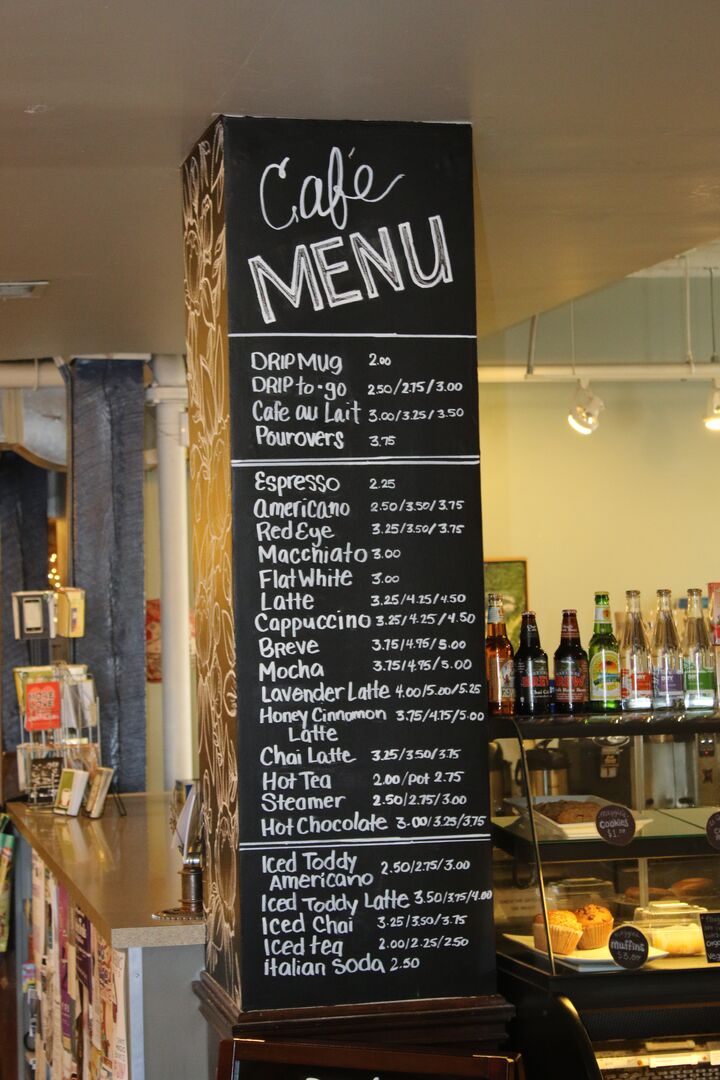 Café
MENU
DRIP MUG 2.00
DRIP to-go 2.50/2.75/3.00
Cafe au Lait 3.00/3.25/3.50
Pourovers 3.75
Espresso 2.25
Americano 2.50/3.50/3.75
Red Eye 3.25/3.50/3.75
Macchiato 3.00
Flat White 3.00
Latte 3.25/4.25/4.50
Cappuccino 3.25/4.25/4.50
Breve 3.75/4.75/5.00
Mocha 3.75/4.75/5.00
Lavender Latte 4.00/5.00/5.25
Honey Cinnamon 3.75/4.75/5.00
Latte
Chai Latte 3.25/3.50/3.75
Hot Tea 2.00/pot 2.75
Steamer 2.50/2.75/3.00
Hot Chocolate 3.00/3.25/3.75
Iced Toddy 2.50/2.75/3.00
Americano
Iced Toddy Latte 3.50/3.75/4.00
Iced Chai 3.25/3.50/3.75
Iced tea 2.00/2.25/2.50
Italian Soda 2.50
COOKIES
muffins
$3.00